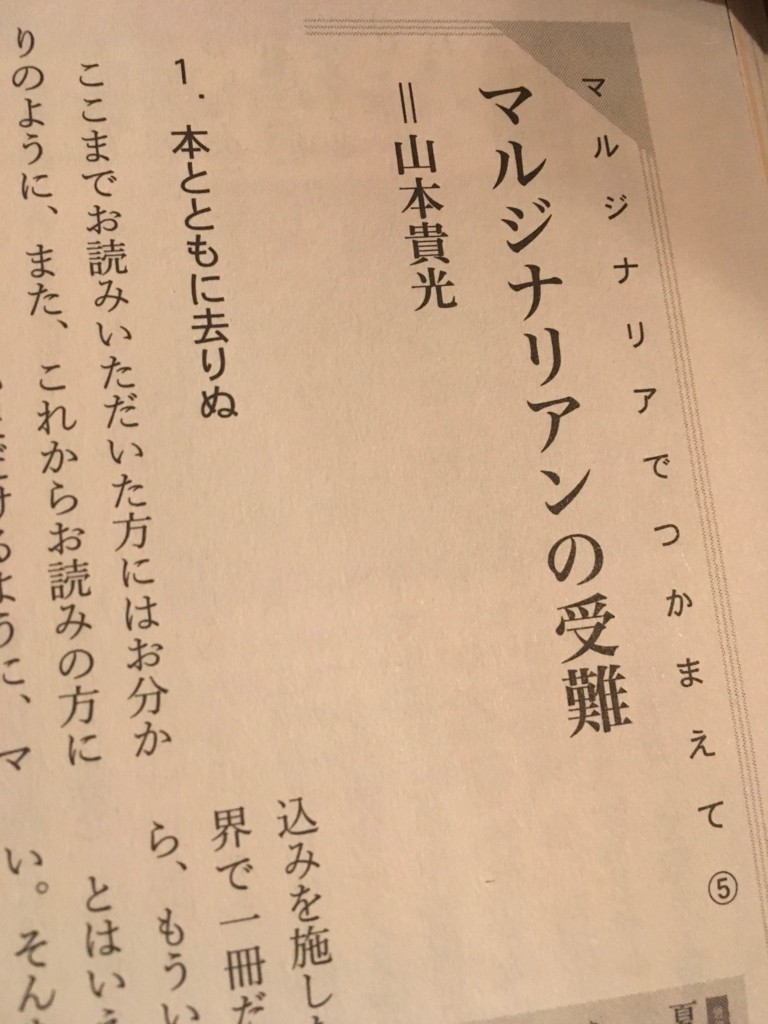 マルジナリアでつかまえて⑤
マルジナリアンの受難
=山本貴光
1. 本とともに去りぬ
ここまでお読みいただいた方にはお分か
りのように、また、これからお読みの方に
だけるように、マ
込みを施し
界で一冊だ
ら、もうい
とはいえ
い。そん
夏